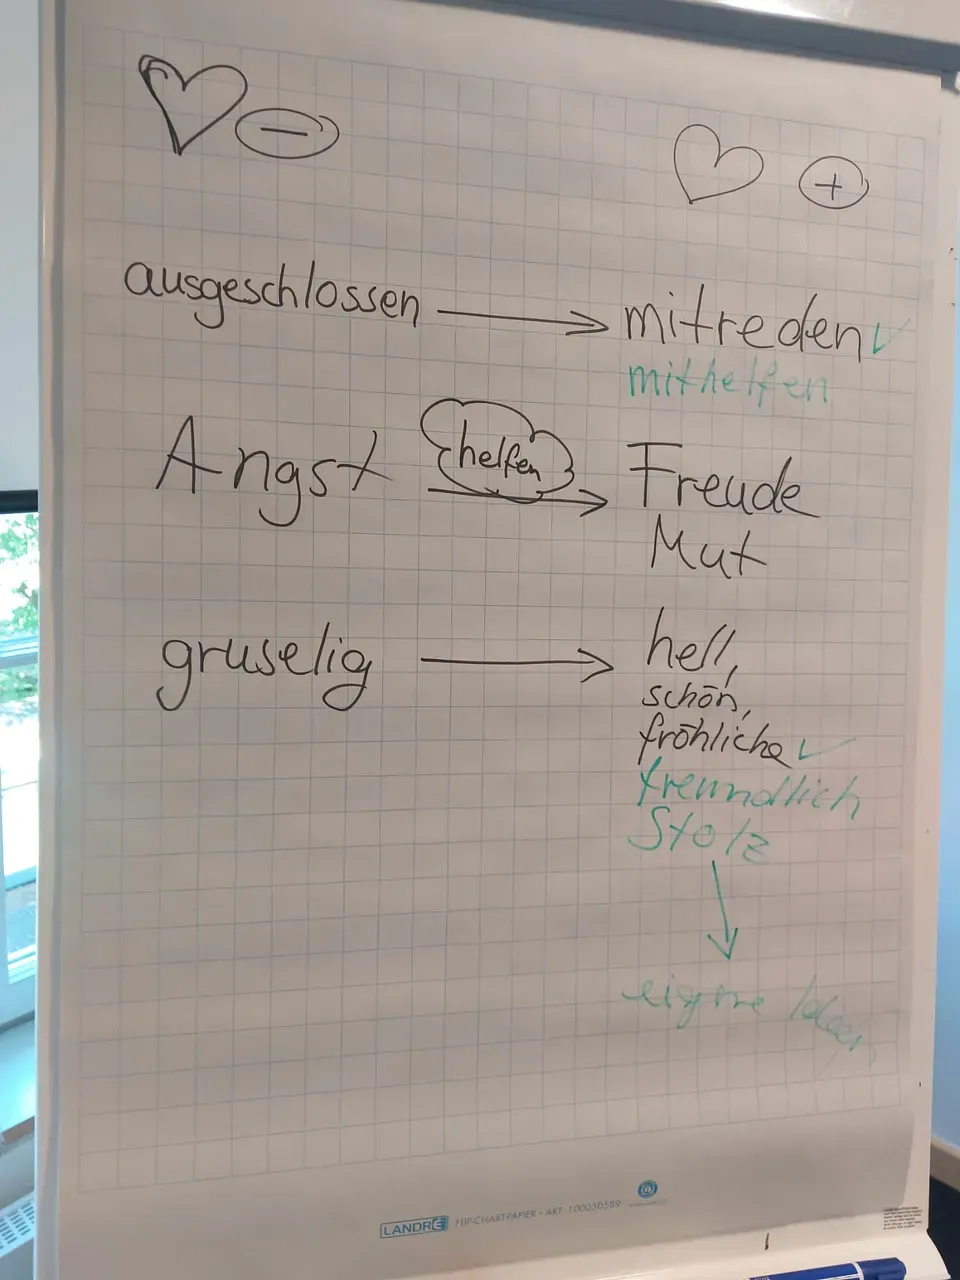 −
+
ausgeschlossen → mitreden ✓
mithelfen
Angst helfen → Freude
Mut
gruselig → hell,
schön,
fröhliche ✓
freundlich
Stolz
↓
eigene Ideen
LANDRÉ FLIP-CHART-PAPIER • ART. 100050589